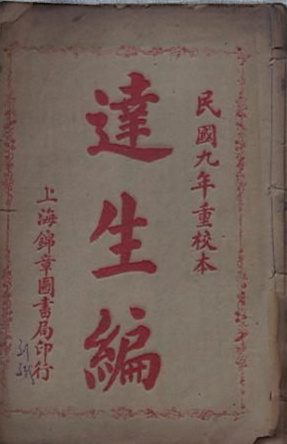 民國九年重校本
達生編
上海錦章圖書局印行